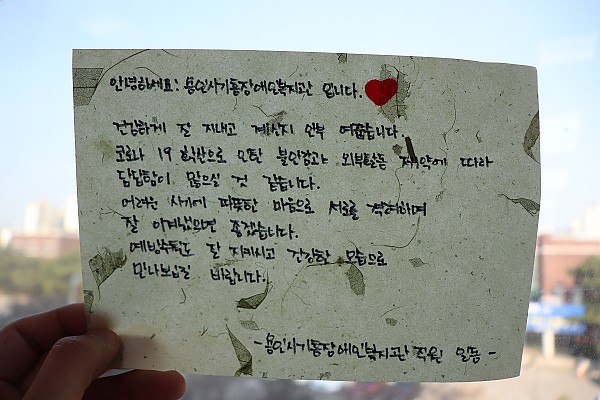 안녕하세요! 용인시기흥장애인복지관 입니다.
건강하게 잘 지내고 계신지 안부 여쭙습니다.
코로나 19 확산으로 오는 불안감과 외부활동 제약에 따라
답답함이 많으실 것 같습니다.
어려운 시기에 따뜻한 마음으로 서로를 격려하며
잘 이겨냈으면 좋겠습니다.
예방수칙도 잘 지키시고 건강한 모습으로
만나뵙길 바랍니다.
-용인시기흥장애인복지관 직원 일동-